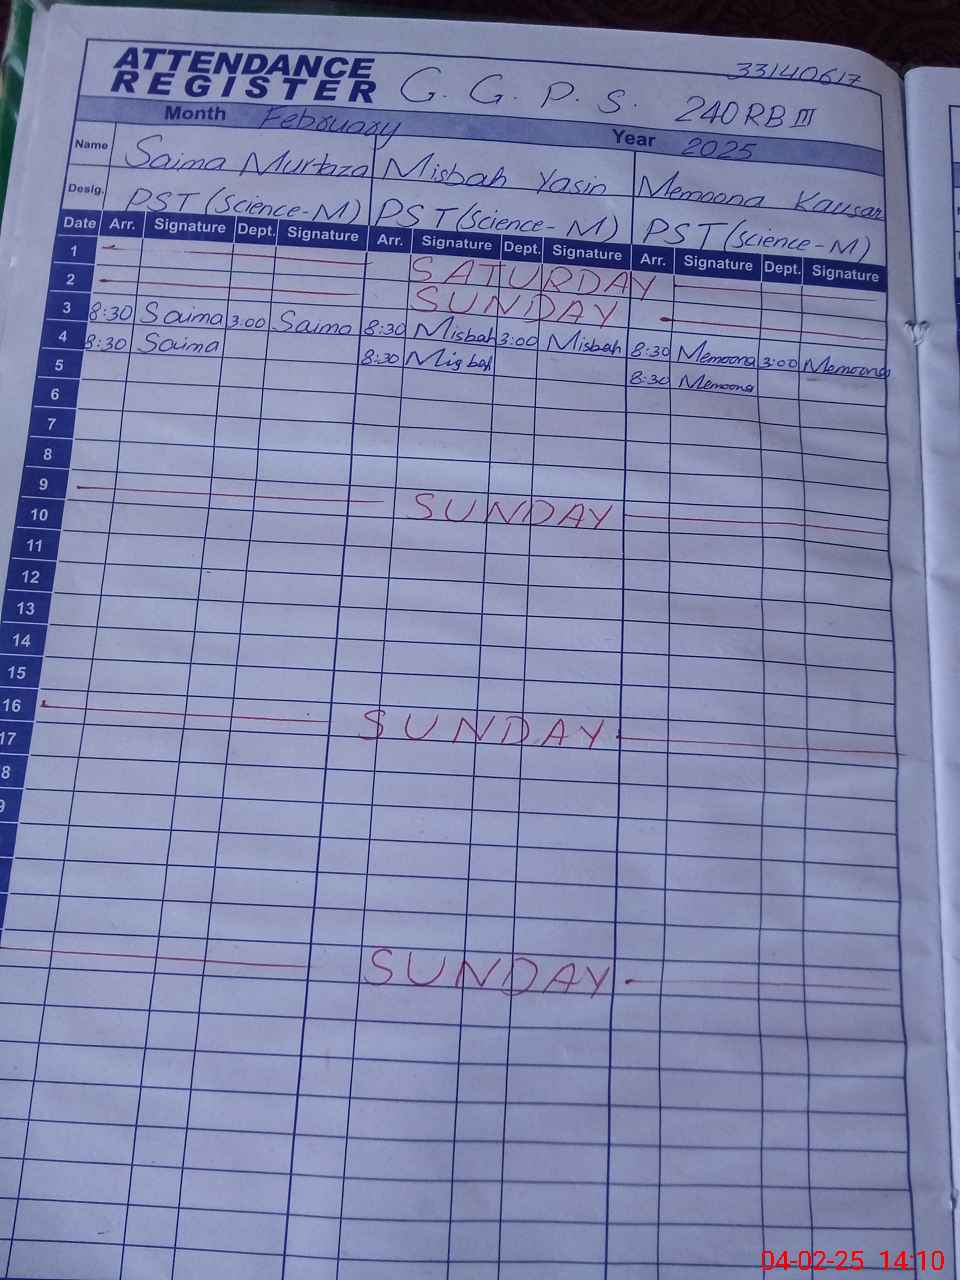 ATTENDANCE REGISTER G. G. P. S. 240 RB III 33140617
Month February Year 2025
Name Saima Murtaza Misbah Yasin Memoona Kausar
Desig. PST (Science-M) PST (Science-M) PST (Science-M)
Date Arr. Signature Dept. Signature Arr. Signature Dept. Signature Arr. Signature Dept. Signature
1 SATURDAY
2 SUNDAY
3 8:30 Saima 3:00 Saima 8:30 Misbah 3:00 Misbah 8:30 Memoona 3:00 Memoona
4 8:30 Saima 8:30 Misbah 8:30 Memoona
5
6
7
8
9 SUNDAY
10
11
12
13
14
15
16 SUNDAY
17
8
9
SUNDAY
04-02-25 14:10